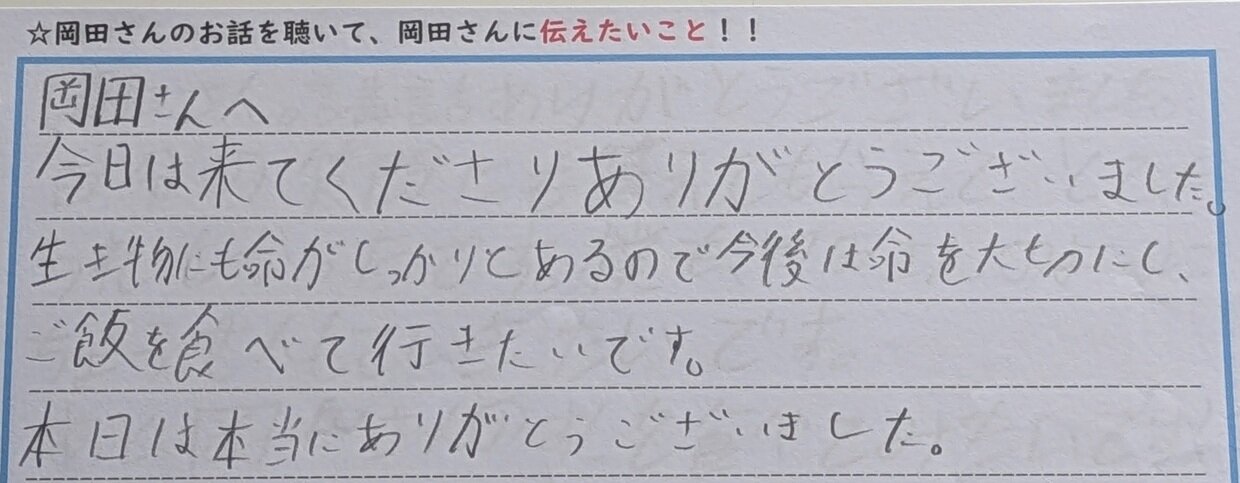 ☆岡田さんのお話を聴いて、岡田さんに伝えたいこと！！
岡田さんへ
今日は来てくださりありがとうございました。
生き物にも命がしっかりとあるので今後は命を大切にし、
ご飯を食べて行きたいです。
本日は本当にありがとうございました。